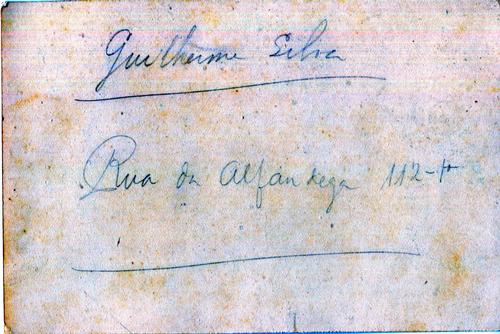 Guilherme Silva
Rua da Alfandega 112-